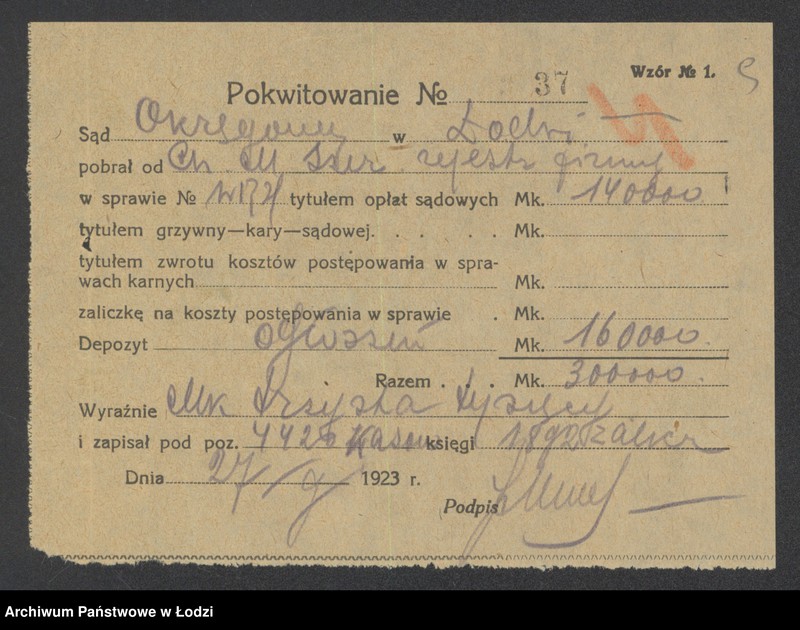 Wzór № 1.
Pokwitowanie № 37
Sąd Okręgowy w Łodzi
pobrał od Ch. M. rejestr firmy
w sprawie № tytułem opłat sądowych Mk. 140000
tytułem grzywny—kary—sądowej. . . . . Mk.
tytułem zwrotu kosztów postępowania w spra-
wach karnych Mk.
zaliczkę na koszty postępowania w sprawie . Mk.
Depozyt ogłoszeń Mk. 160000.
Razem . . . Mk. 300000.
Wyraźnie Mk trzysta tysięcy
i zapisał pod poz. 4426 księgi
Dnia 27/9 1923 r.
Podpis
Archiwum Państwowe w Łodzi